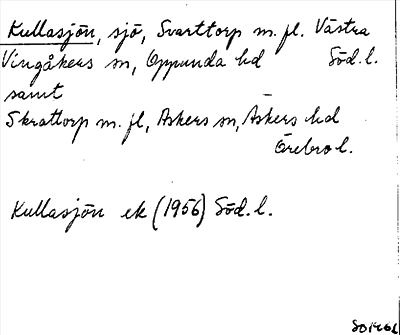 Kullasjön, sjö, Svarttorp m. fl. Västra
Vingåkers sn, Oppunda hd Söd. l.
samt
Skrattorp m. fl, Askers sn, Askers hd
Örebro l.
Kullasjön ek (1956) Söd. l.